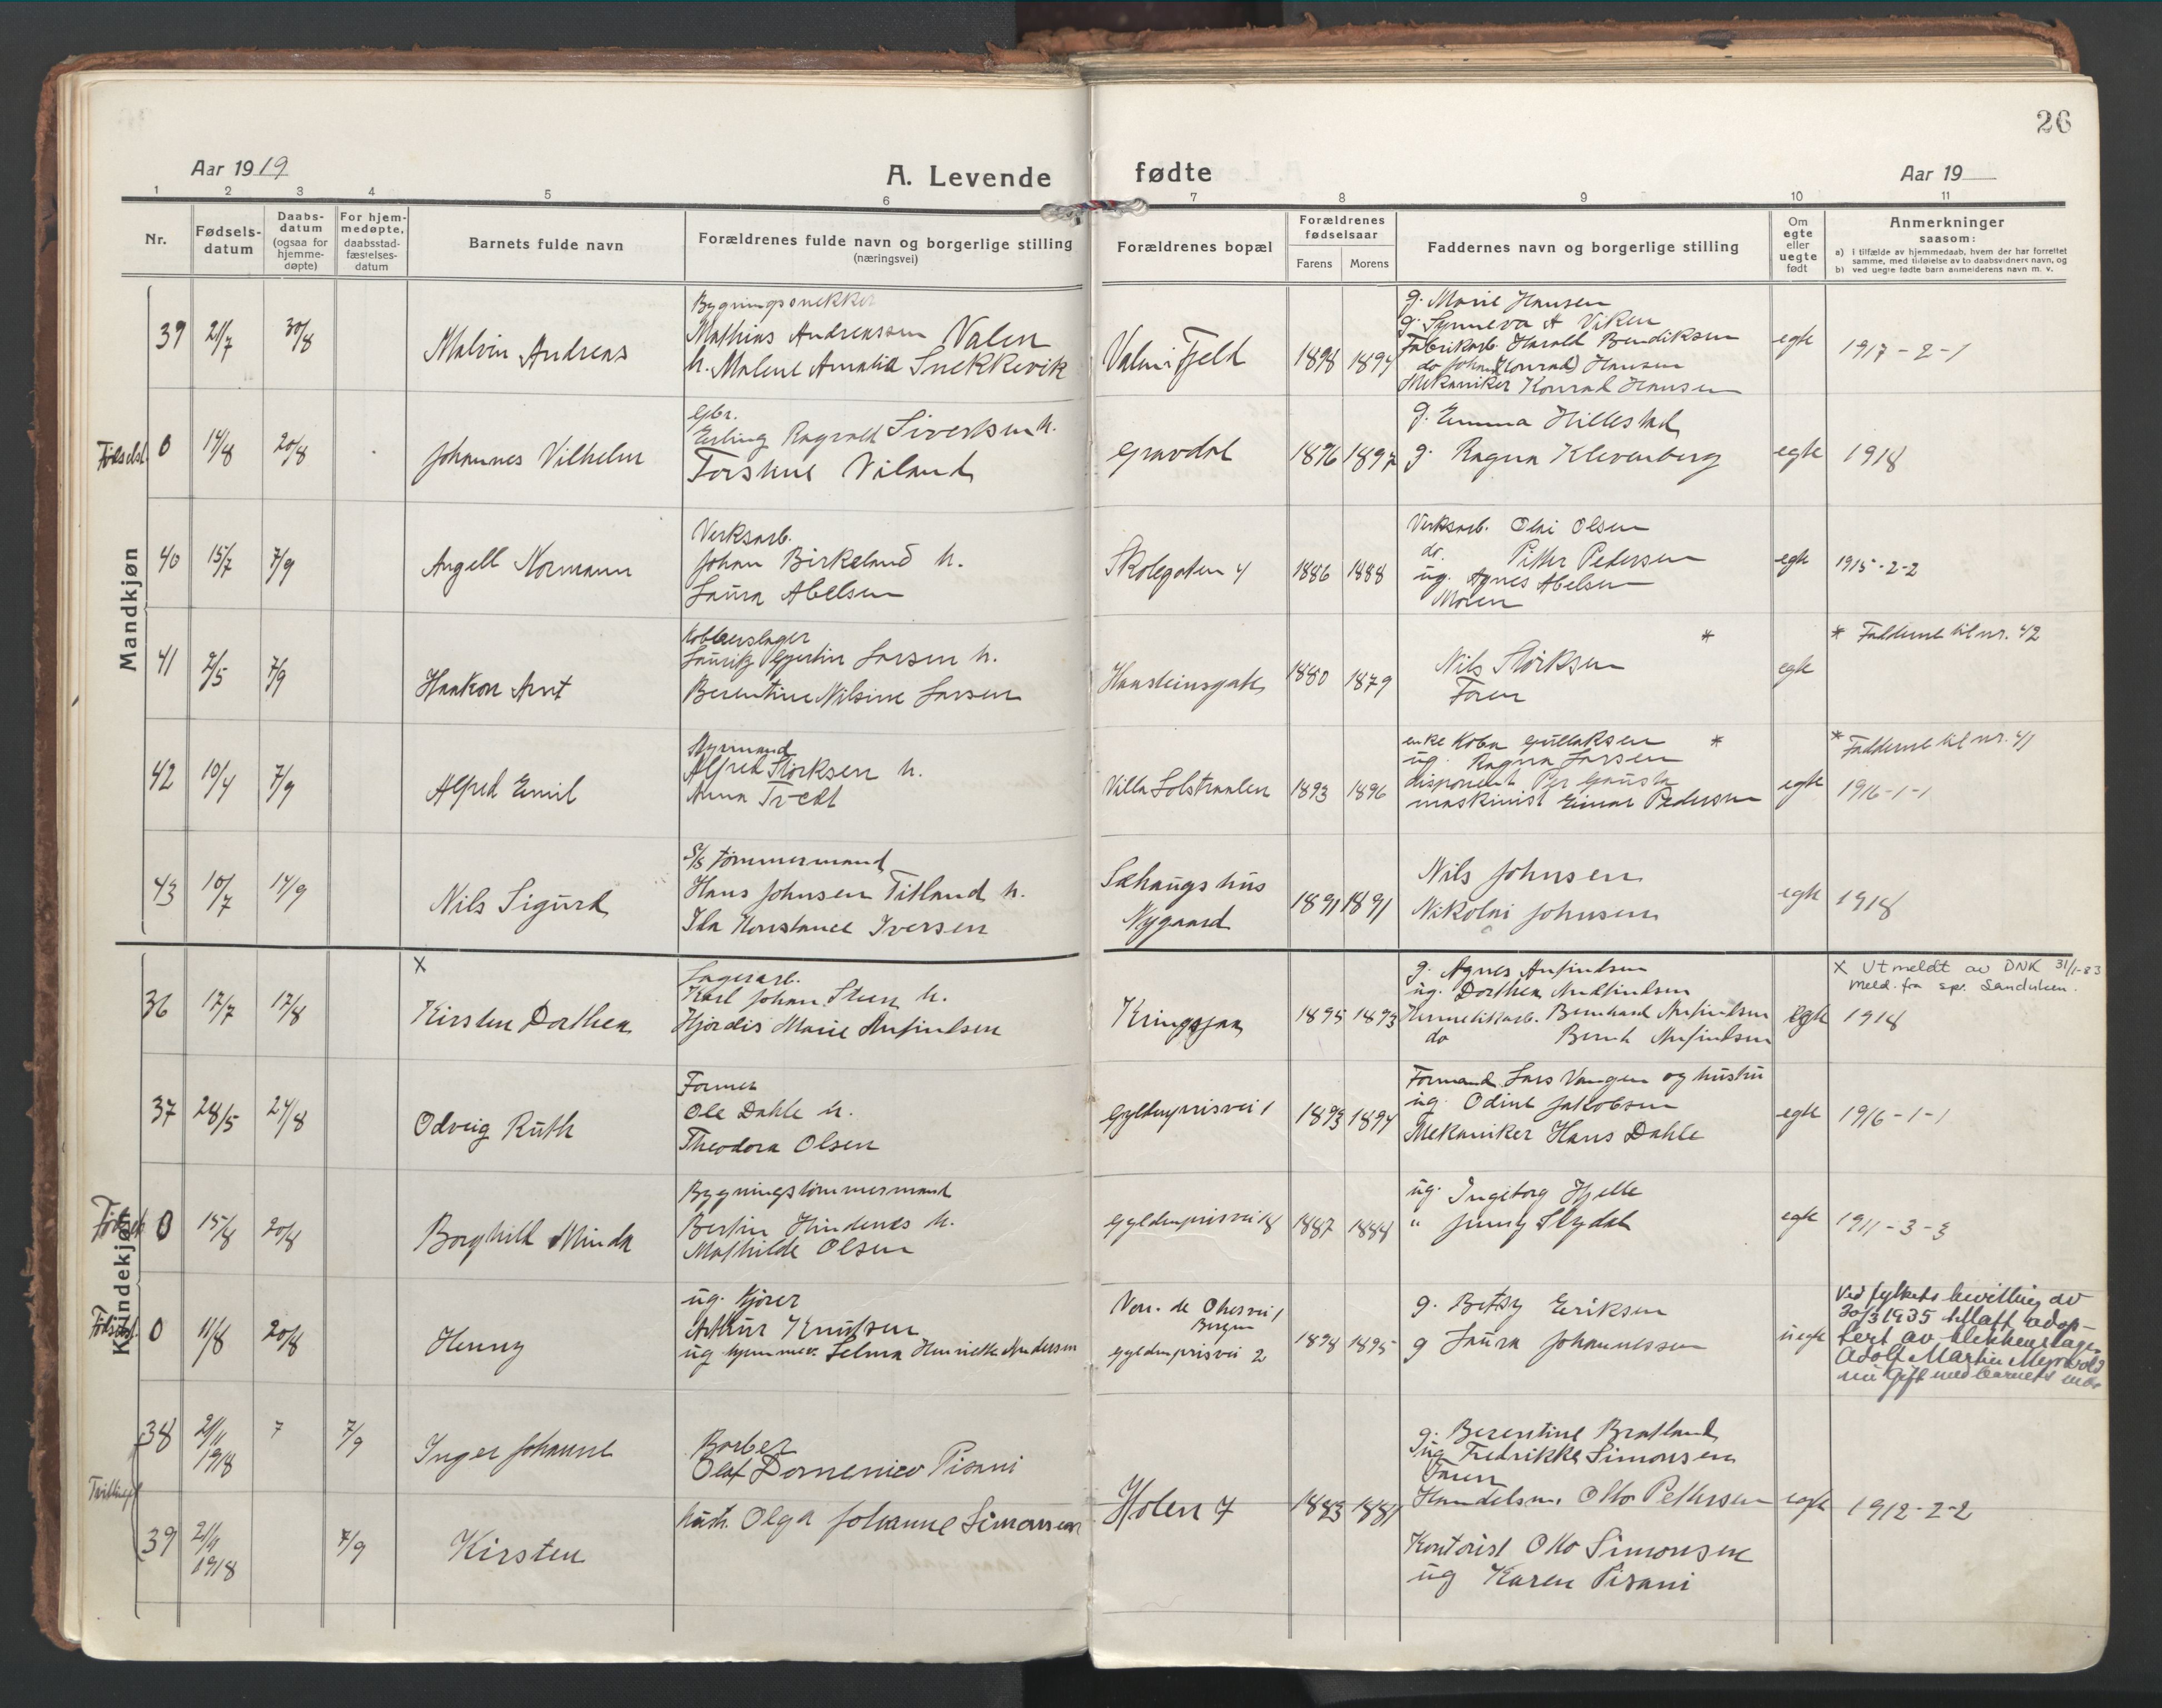 26
Aar 1919
A. Levende fødte
Aar 19
1 2 3 4 5 6 7 8 9 10 11
Nr.
Fødsels-
datum
Daabs-
datum
(ogsaa for
hjemme-
døpte)
For hjem-
medøpte,
daabsstad-
fæstelses-
datum
Barnets fulde navn
Forældrenes fulde navn og borgerlige stilling
(næringsvei)
Forældrenes bopæl
Forældrenes
fødselsaar
Farens Morens
Faddernes navn og borgerlige stilling
Om
egte
eller
uegte
født
Anmerkninger
saasom:
a) i tilfælde av hjemmedaab, hvem der har forrettet
samme, med tilføielse av to daabsvidners navn, og
b) ved uegte fødte barn anmelderens navn m. v.
Mandkjøn
39 21/7 30/8
Malvin Andreas
Bygningssnekker
Mathias Andreassen Valen
h. Malene Amalia Snekkevik
Valen i Fjeld
1898 1894
g. Marie Hansen
g. Synneva A Viken
Fabrikarb. Harald Bendiksen
do Johan (Konrad) Hansen
Mekaniker Konrad Hansen
egte
1917-2-1
Fødselsst. 0 14/8 20/8
Johannes Vilhelm
Gbr.
Erling Ragvald Sivertsen h.
Torshue Viland
Gravdal
1896 1897
g. Emma Hillestad
g. Ragna Klevenberg
egte
1918
40 15/7 7/9
Angell Normann
Verksarb.
Johan Birkeland h.
Laura Abelsen
Skolegaten 4
1886 1888
Verksarb. Olai Olsen
do. Pitter Pedersen
ug. Agnes Abelsen
Moren
egte
1915-2-2
41 2/5 7/9
Haakon Arnt
Kobberslager
Lauritz Gjertin Larsen h.
Berentine Nilsine Larsen
Hansteinsgate
1880 1879
*
Nils Størksen
Faren
egte
* Fadderne til nr. 42
42 10/4 7/9
Alfred Emil
Styrmand
Alfred Størksen h.
Anna Tvedt
Villa Solstraalen
1893 1896
enke Koba Gullaksen *
ug. Ragna Larsen
disponent Per Gausta
maskinist Einar Pedersen
egte
* Fadderne til nr. 41
1916-1-1
43 10/7 14/9
Nils Sigurd
S/S tømmermand
Hans Johnsen Titland h.
Ida Konstance Iversen
Sæhaugs hus
Nygaard
1891 1891
Nils Johnsen
Nikolai Johnsen
egte
1918
Kvindekjøn
36 17/7 17/8
X
Kirsten Dorthea
Lagerarb.
Karl Johan Steen h.
Hjørdis Marie Anfindsen
Kringsjaa
1895 1893
g. Agnes Anfindsen
ug. Dorthea Anfindsen
Hermetikkarb. Bernhard Anfindsen
do Bernt Anfindsen
egte
X Utmeldt av DNK 31/1-83
Meld. fra spr. Sandviken.
1918
37 28/5 24/8
Odveig Ruth
Former
Ole Dahle h.
Theodora Olsen
Gyldenprisvei 1
1893 1894
Formand Lars Vangen og hustru
ug. Odine Jakobsen
Mekaniker Hans Dahle
egte
1916-1-1
Fødselsst. 0 15/8 20/8
Borghild Minda
Bygningstømmermand
Bertin Hindenes h.
Mathilde Olsen
Gyldenprisvei 18
1887 1884
ug. Ingeborg Hjelle
" Jenny Slydal
egte
1911-3-3
Fødselsst. 0 11/8 20/8
Henny
ug. kjører
Arthur Knutsen
ug hjemmev. Selma Henriette Andersen
Bergen
Gyldenprisvei 2
1894 1895
g. Betsy Eriksen
g Laura Johannessen
uegte
Ved fylkets bevilling av
20/3 1935 tillatt adop-
tert av blikkenslager
Adolf Martin Myrvold
nu gift med barnets mor
Tvillinger
38 21/11 1918 7 7/9
Inger Johanne
Barber
Olaf Domenico Pisani
hustr. Olga Johanne Simonsen
Holen 7
1883 1881
g. Berentine Bratland
ug Fredrikke Simonsen
Faren
Handelsm. Otto Pettersen
Kontorist Otto Simonsen
ug Karen Pisani
egte
1912-2-2
39 21/11 1918 7/9
Kirsten